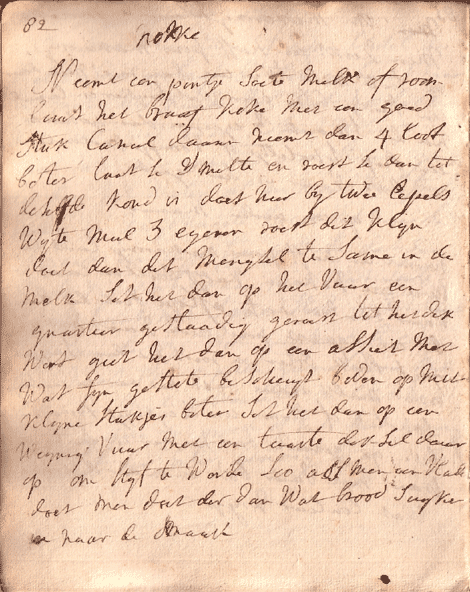 82
nokke
Neemt een pintje Soete Melk of room
laat het braaf koke Met een goed
Stuk Caneel daarin neemt dan 4 loot
boter laat se Smelte en roert se dan tot
de helfde koud is doet hier by twee lepels
Wyte Meel 3 eyeren roert dit klyn
doet dan dit Mengsel te Same in de
Melk Set het dan op het Vuur een
quartier gestaadig geroert tot het dik
Wort giet het dan op een assiet Met
Wat fyn beschuyt boven op Met
klyne Stukjes boter Set het dan op een
Weynig Vuur Met een taarte deksel daar
op om Styf te Worde Soo als men een
doet Men doet der dan Wat brood Suyker
in naar de Smaak